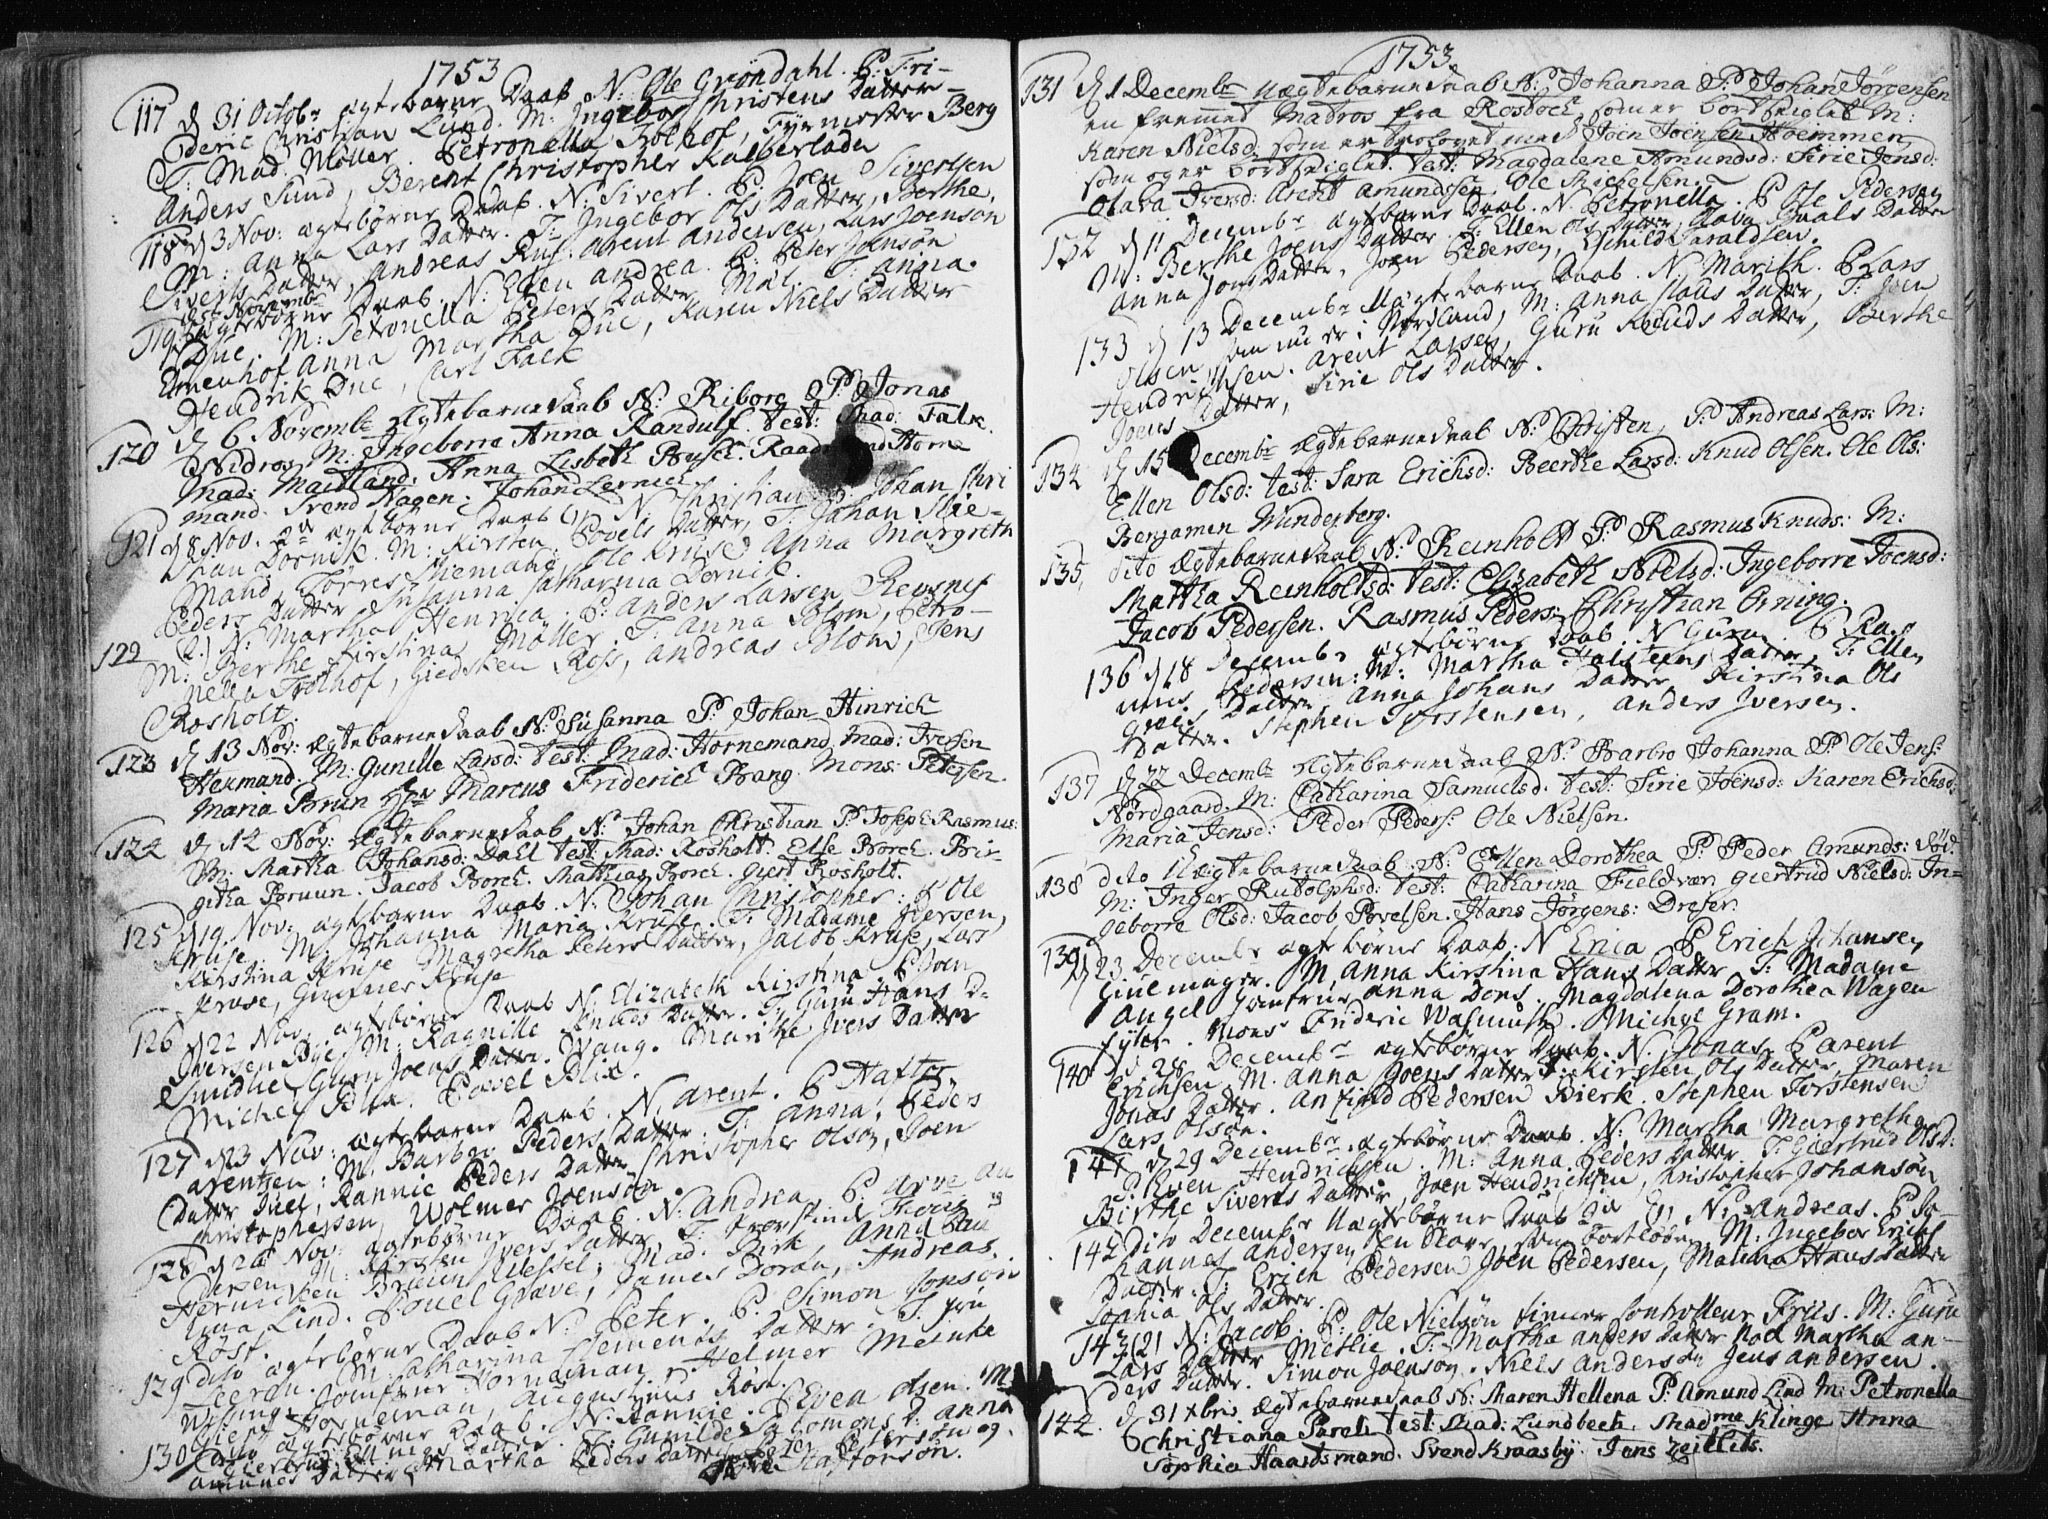 1753
117 d 31 Octobr ægtebarne Daab N: Ole Gröndahl. P: Fri-
ederic Christian Lund. M: Ingebor Christens Datter
T: Mad. Möller. Petronella Tolhof, Fyrmester Berg
Anders Sund, Berent Christopher Kalberladn
118 d 3 Nov: ægtebörne Daab. N: Sivert. P: Joen Sivertsen
M: Anna Lars Datter. T: Ingebor Ols Datter, Berthe
Siverts Datter, Andreas Rus. Arent Andersen, Lars Joenson
119 ægtebörne Daab. N: Ellen Andrea. P: Peter Jonsön
Due. M: Petronella Peters Datter Möl. T: Anna
Emenhof Anna Martha Due, Karen Niels Datter
Hendrik Due, Carl Falk
120 d 6 Novembr Ægtebarnedaab N: Riborg P: Jonas
Nidros M: Ingeborre Anna Randulf. Test: Mad: Falk.
Mad: Maitland. Anna Lisbeth Busch. Raad Horne
mand. Svend Hagen. Johan Lernich
121 d 8 Nov. ægtebörne Daab (1) N: Christian P: Johan Chri
stian Dornik. M: Kirsten Povels Datter, T: Johan Nie-
mand, Torres Niemand, Ole Kruse Anna Margreth
Peders Datter Susanna Catharina Dornik.
122 (2.) N: Martha Henrica. P: Anders Larsen Revsnes
M: Berthe Kirstina Möller. T: Anna Blom, Petro-
nella Tolhof, Giedsken Ross, Andreas Blom, Jens
Rosholt.
123 d 13 Nov: ægtebarnedaab N: Susanna P: Johan Hinrich
Hexmand. M: Gunille Larsd: Test: Mad: Hornemand Mad: Iversen
Maria Brun Hr Marcus Friderich Bang. Mons: Petersen.
124 d 14 Nov: ægtebarnedaab N: Johan Christian P: Joseph Rasmus:
M: Martha Johansd: Dahl Test: Mad: Rosholt Else Borch. Bir-
githa Bruun. Jacob Borch. Mathias Borch. Giert Rosholt.
125 d 19 Nov: ægtebarne Daab. N: Johan Christopher. P: Ole
Kruse. M: Johanna Maria Kruse. T: Madame Iversen,
Kirstina Kruse Magretha Peters Datter, Jacob Kruse, Lars
Kruse, Gunner Kruse
126 d 22 Nov: ægtebörne Daab N: Elizabeth Kirstina. P: Joen
Iversen Bye, M: Ragnille Knuds Datter. T: Guru Hans D-
Smidue, Guru Joens Datter Wang. Marithe Ivers Datter
Michel Blix. Povel Blix.
127 d 23 Nov: ægtebarne Daab. N: Arent. P: Hafto
Arentzen: M: Barbro Peders Datter: T: Anna Peders
Datter Duel, Rannie Peders Datter Christopher Olson, Joen
Christophersen, Wolmer Joenson.
128 d 26 Nov: ægtebörne Daab. N: Andrea. P: Arne An
dersen M: Kirsten Ivers Datter. T:
Hermirtsen Bruun Wessel, Mad. Birk, Anna
Anna Lind. Povel Græve, James Doran, Andreas
Röst.
129 Dito ægtebörne Daab N: Peter. P: Simon Jonson
Leeren. M: Catharina Clements Datter. T: Jfru
Wissing, Jomfrue Horneman. Helmer Meinke
Giert Horneman, Augustinus Röst.
130 Dito ægtebörne Daab. N: Rannie. P: Even Olsen. M:
Giertrud Elling Datter. T: Gunilde Salomons D. Anna
Amunds Datter, Martha Peders Datter Peter Peterson og
Haftorson.
1753
131 d 1 Decembr Uægtebarnedaab N: Johanna P: Johan Jörgensen
en fremmet Matros fra Rostoch, som er bortseiglet M:
Karen Nielsd: som er trolovet med Joen Joensen Hoemmen
som og er bortseiglet. Test: Magdalene Amundsd: Sirie Jensd:
Olava Iversd: Arent Amundssen. Ole Michelsen.
132 d 11 Decembr ægtebörne Daab. N: Petronella. P: Ole Pedersen
M: Berthe Joens Datter. T: Ellen Ols Datter, Olava Sivals Datter
Anna Jons Datter, Joen Pedersen, Eschild Haraldsen.
133 d 13 Decembr Uægtebarne Daab. N: Marith. P: Lars
Olsen som nu er i Nordland, M: Anna Claus Datter, T: Joen
Hendrichsen. Arent Larsen, Guru Knuds Datter, Berthe
Joens Datter, Sirie Ols Datter.
134 d 15 Decembr Ægtebarnedaab N: Christen, P: Andreas Lars: M:
Ellen Olsd: Test: Sara Erichsd: Beerthe Larsd: Knud Olsen. Ole Ols:
Benjamen Wunderberg.
135. dito Ægtebarnedaab N: Reinholt P: Rasmus Knuds: M:
Martha Reinholtsd: Test: Elizabeth Nielsd: Ingeborre Joensd:
Jacob Pedersen. Rasmus Peders: Christian Orning.
136 d 18 Decembr ægtebörne Daab. N: Guru. P: Ras-
mus Pedersen: M: Martha Halsteens Datter, T: Ellen
Datter Anna Johans Datter Kirstina Ols
Datter. Stephen Torstensen, Anders Iversen.
137 d 22 Decembr Ægtebarnedaab N: Barbro Johanna P: Ole Jens:
Nordgaard. M: Catharina Samuelsd. Test: Sirie Joensd: Karen Erichsd:
Maria Jensd: Peder Peders: Ole Nielsen.
138 dito Uægtebarnedaab N: Ellen Dorothea P: Peder Amunds: Sød.
M: Inger Rutolphsd: Test: Catharina Fieldvær Giertrud Nielsd: In-
geborre Olsd: Jacob Povelsen. Hans Jörgens: Dreser.
139 d 23 Decembr ægtebörne Daab. N: Erica P: Erich Johansen
Giinemager. M: Anna Kirstina Hans Datter T: Madame
Angel Jomfrue Anna Dons. Magdalena Dorothea Wagen
fylor. Mons: Frideric Wasmuth. Michel Gram.
140 d 28 Decembr ægtebörne Daab. N: Jonas P: Arent
Erichsen M. Anna Joens Datter T: Kirsten Ols Datter, Maren
Jonas Datter. Anfind Pedersen Bierk. Stephen Torstensen
Lars Olson.
141 d 29 Decembr ægtebörne Daab. N: Martha Margretha
P: Even Hendrichsen. M: Anna Peders Datter. T: Giertrud Ols D:
Birthe Siverts Datter, Joen Hendrichsen, Christopher Johansön
142 Dito Decembr Uægtebörne Daab (1) N: Andreas. P: Jo-
hannes Andersen en Slave, som bortlöben M: Ingebor Erichs
Datter. T: Erich Pedersen Joen Pedersen, Malena Hans Datter
Sophia Ols Datter.
143 (2) N: Jacob. P: Ole Nielsön tienner Controlleur Friis. M: Guru
Lars Datter Methe. T: Martha Anders Datter Noch Martha An-
ders Datter. Simon Joenson. Niels Anderson Jens Andersen.
144. d 31 Xbris Ægtebarnedaab N: Maren Hellena P: Amund Lind M: Petronella
Christiana Pareli Test: Mad: Lundbech. Madme Klinge Anna
Sophia Haardsmand. Svend Kraasby. Jans Zeitlits.